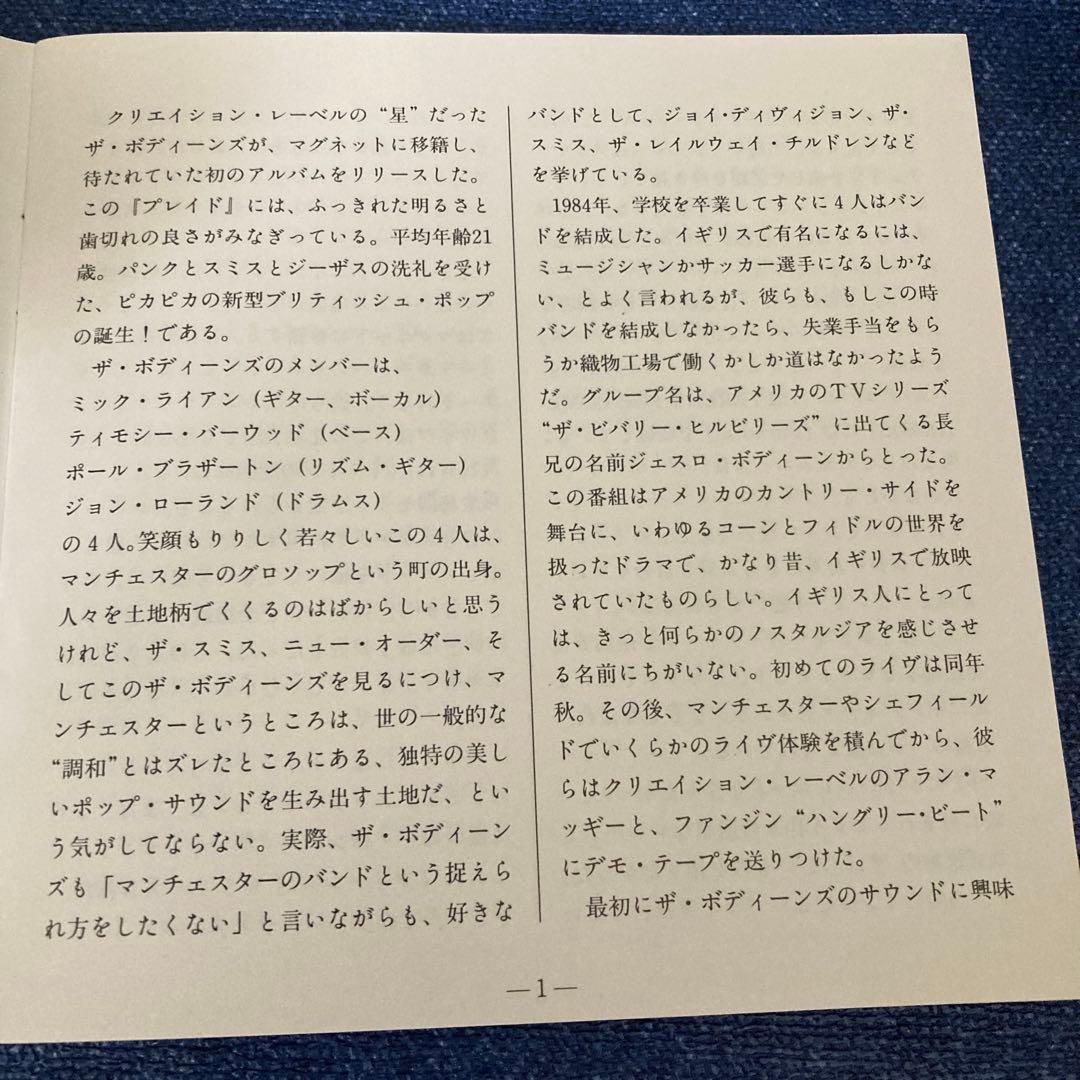 クリエイション・レーベルの“星”だった
ザ・ボディーンズが、マグネットに移籍し、
待たれていた初のアルバムをリリースした。
この『プレイド』には、ふっきれた明るさと
歯切れの良さがみなぎっている。平均年齢21
歳。パンクとスミスとジーザスの洗礼を受け
た、ピカピカの新型ブリティッシュ・ポップ
の誕生！である。
ザ・ボディーンズのメンバーは、
ミック・ライアン（ギター、ボーカル）
ティモシー・バーウッド（ベース）
ポール・ブラザートン（リズム・ギター）
ジョン・ローランド（ドラムス）
の４人。笑顔もりりしく若々しいこの４人は、
マンチェスターのグロソップという町の出身。
人々を土地柄でくくるのはばからしいと思う
けれど、ザ・スミス、ニュー・オーダー、そ
してこのザ・ボディーンズを見るにつけ、マ
ンチェスターというところは、世の一般的な
“調和”とはズレたところにある、独特の美し
いポップ・サウンドを生み出す土地だ、とい
う気がしてならない。実際、ザ・ボディーン
ズも「マンチェスターのバンドという捉えら
れ方をしたくない」と言いながらも、好きな
バンドとして、ジョイ・ディヴィジョン、ザ・
スミス、ザ・レイルウェイ・チルドレンなど
を挙げている。
1984年、学校を卒業してすぐに４人はバン
ドを結成した。イギリスで有名になるには、
ミュージシャンかサッカー選手になるしかな
い、とよく言われるが、彼らも、もしこの時
バンドを結成しなかったら、失業手当をもら
うか織物工場で働くかしか道はなかったよう
だ。グループ名は、アメリカのＴＶシリーズ
“ザ・ビバリー・ヒルビリーズ”に出てくる長
兄の名前ジェスロ・ボディーンからとった。
この番組はアメリカのカントリー・サイドを
舞台に、いわゆるコーンとフィドルの世界を
扱ったドラマで、かなり昔、イギリスで放映
されていたものらしい。イギリス人にとって
は、きっと何らかのノスタルジアを感じさせ
る名前にちがいない。初めてのライヴは同年
秋。その後、マンチェスターやシェフィール
ドでいくらかのライヴ体験を積んでから、彼
らはクリエイション・レーベルのアラン・マ
ッギーと、ファンジン“ハングリー・ビート”
にデモ・テープを送りつけた。
最初にザ・ボディーンズのサウンドに興味
—1—